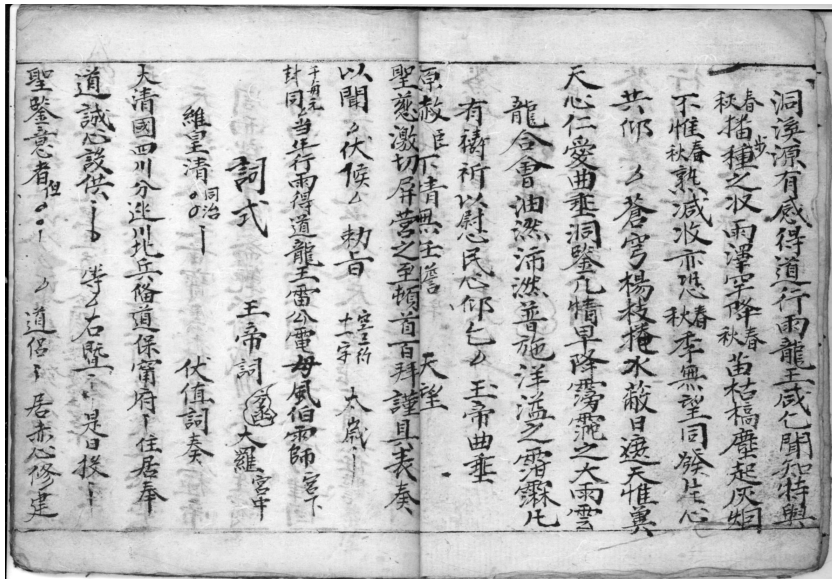 洞渙源有感得道行雨龍王咸乞聞知特與
春秋描種之収雨澤罕降春秋苗枯槁塵起灰烟
不惟春秋熟減收亦恐春秋季無望同發生心
共仰 蒼穹楊枝掩水蔽日遮天惟冀
天心仁愛曲垂洞鑒凡情早降霶霈之大雨雲
龍合會油然沛然普施洋溢之霄霖凡
有禱祈以慰民心仰乞 玉帝曲垂
原赦臣下情無任瞻 天望
聖慈激切屏營之至頓首百拜謹具表奏
以聞 伏候 勅旨 太歲
封同 当年行雨得道龍王雷公電母風伯雨師 宮下
詞式 王帝詞 大羅宮中
維皇清同治 伏值詞奏
大清國四川分巡川北兵俻道保寧府 住居奉
道誠心設供 等 右暨 是日投
聖鑒意者但 道侣 居赤心修建